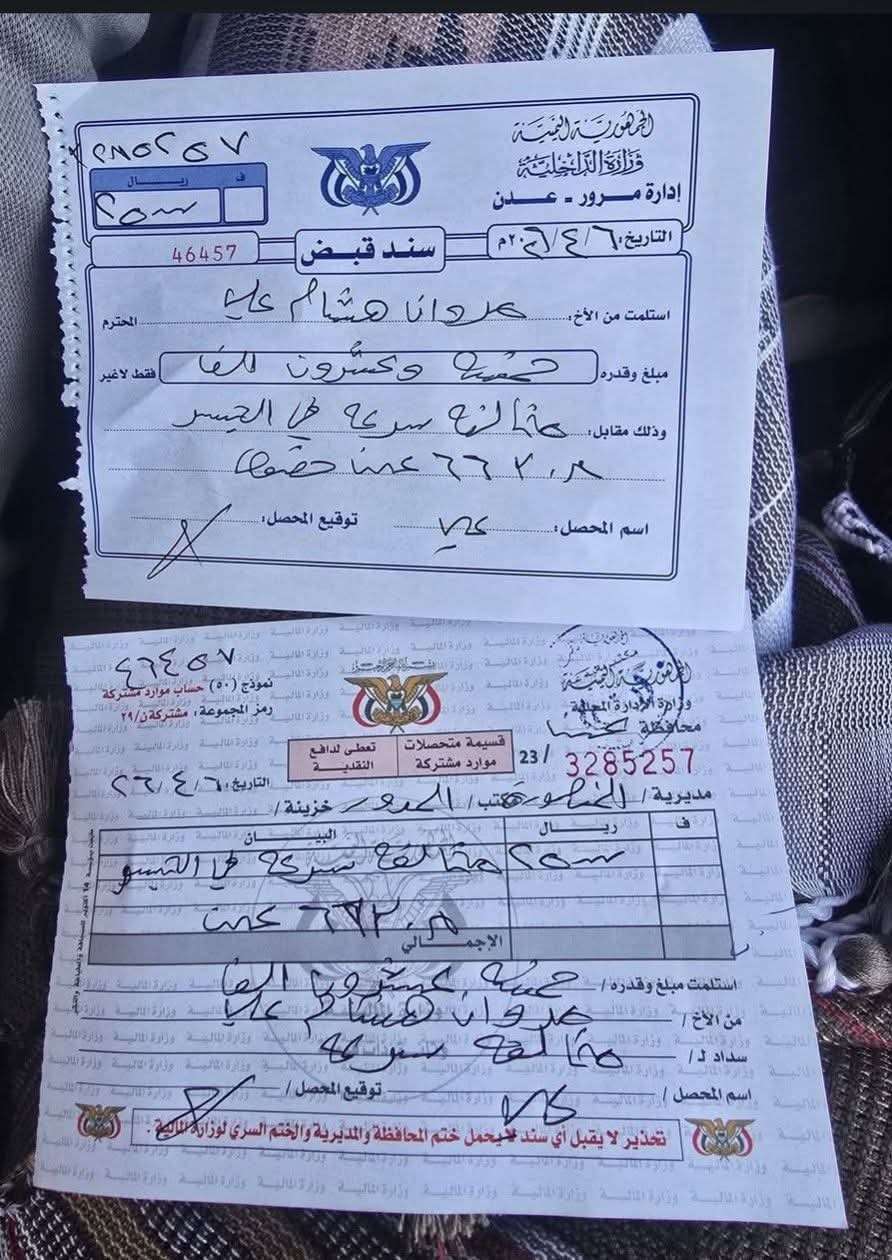 الجمهورية اليمنية
وزارة الداخلية
إدارة مرور - عدن
٣٢٨٥٢٥٧
ف ريال
التاريخ: ٦/٤/٢٠٢٦م
سند قبض
46457
استلمت من الأخ: مروان هشام علي المحترم
مبلغ وقدره خمسة وعشرون الفا فقط لاغير
وذلك مقابل: مخالفة سرعة في الجسر
عدن
اسم المحصل: علي توقيع المحصل:
الجمهورية اليمنية
وزارة الإدارة المحلية
محافظة
٤٦٤٥٧
نموذج (٥٠) حساب موارد مشتركة
رمز المجموعة: مشتركة ن/٢٩
قسيمة متحصلات موارد مشتركة
تعطى لدافع النقدية
23/ 3285257
التاريخ: ٦/٤/٢٦
مديرية / المنصورة مكتب / المرور خزينة /
ف ريال البيـــان
مخالفة سرعة في الجسر
عدن
الإجمـــالي
استلمت مبلغ وقدره / خمسة عشرون الفا
من الأخ / مروان هشام علي
سداد لـ / مخالفة سرعة
اسم المحصل / علي توقيع المحصل /
تحذير لا يقبل أي سند لا يحمل ختم المحافظة والمديرية والختم السري لوزارة المالية.